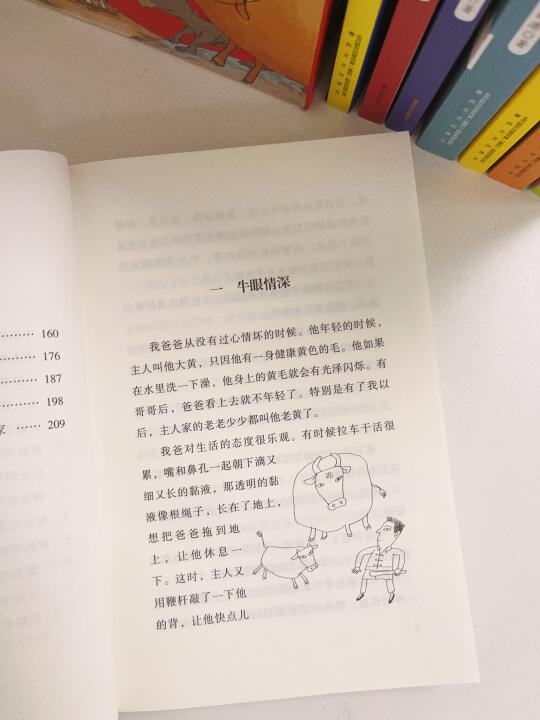 160
176
187
198
家 209
一 牛眼情深
我爸爸从没有过心情坏的时候。他年轻的时候，
主人叫他大黄，只因他有一身健康黄色的毛。他如果
在水里洗一下澡，他身上的黄毛就会有光泽闪烁。有
哥哥后，爸爸看上去就不年轻了。特别是有了我以
后，主人家的老老少少都叫他老黄了。
我爸对生活的态度很乐观。有时候拉车干活很
累，嘴和鼻孔一起朝下滴又
细又长的黏液，那透明的黏
液像根绳子，长在了地上，
想把爸爸拖到地
上，让他休息一
下。这时，主人又
用鞭杆敲了一下他
的背，让他快点儿